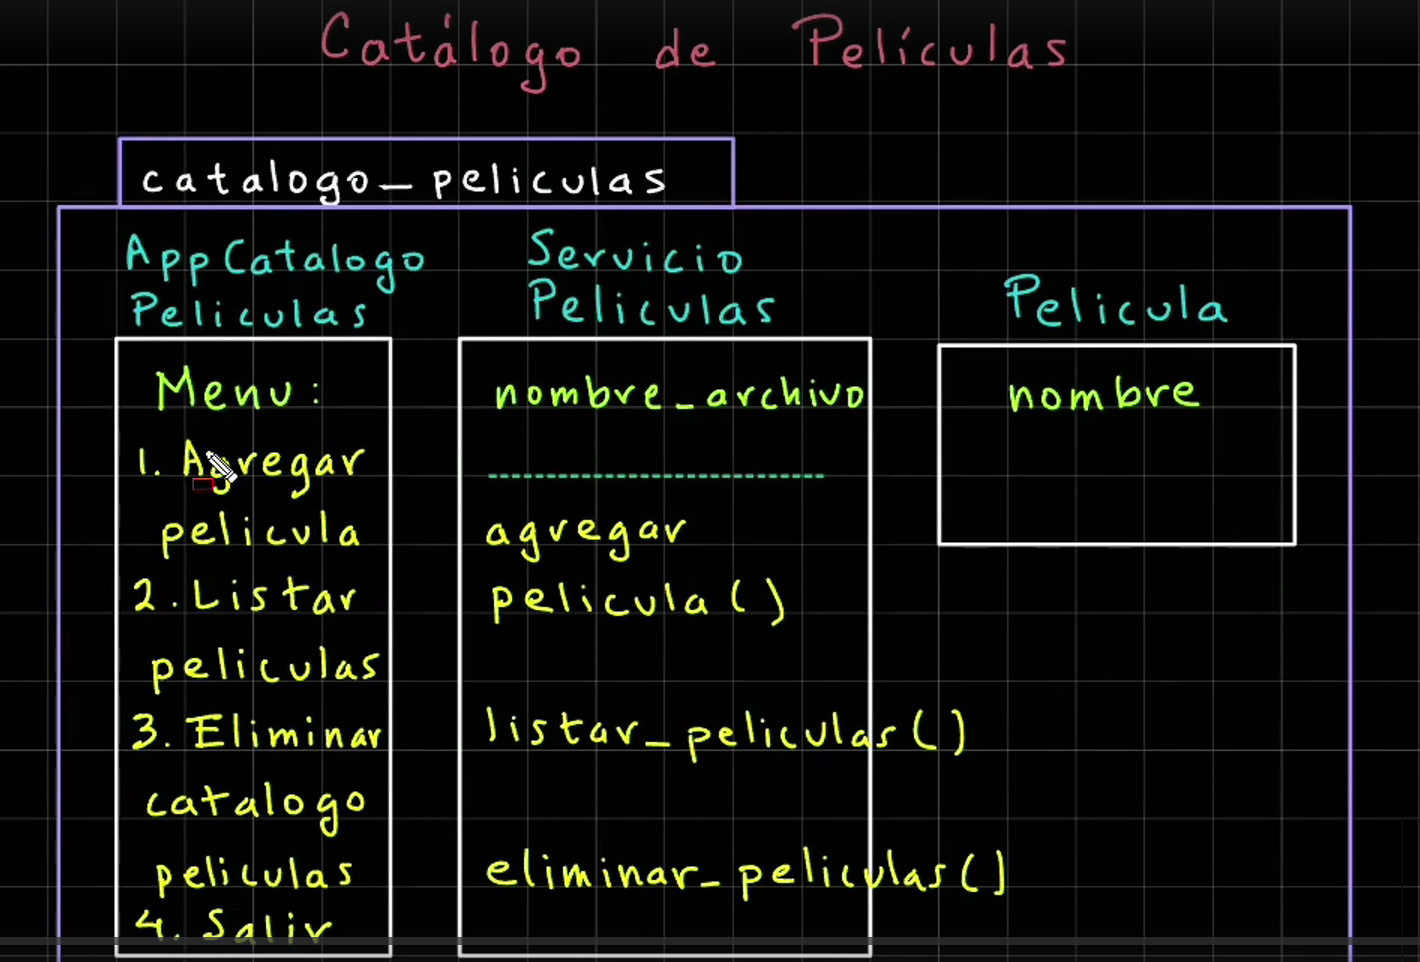 Catálogo de Películas
catalogo_peliculas
AppCatalogo
Peliculas
Menu:
1. Agregar
pelicula
2. Listar
peliculas
3. Eliminar
catalogo
peliculas
4. Salir
Servicio
Peliculas
nombre_archivo
agregar
pelicula()
listar_peliculas()
eliminar_peliculas()
Pelicula
nombre